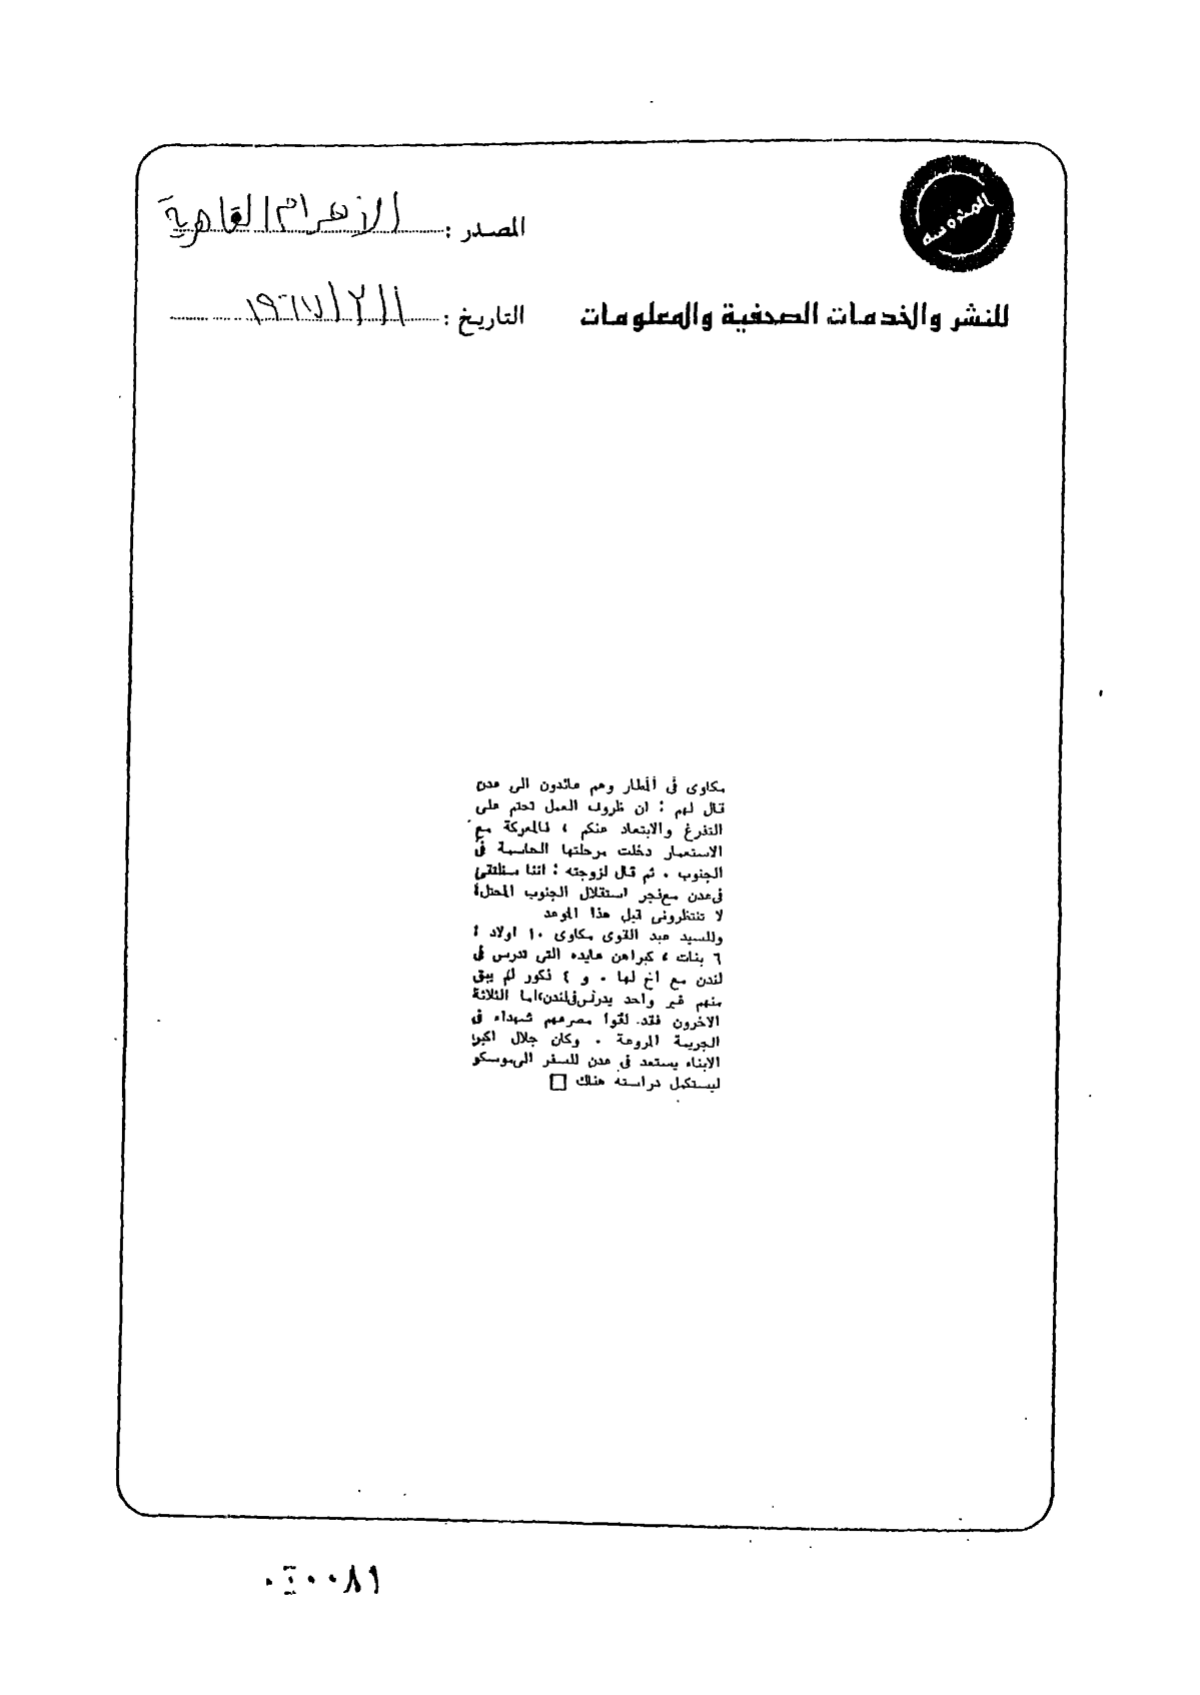 المحروسة
للنشر والخدمات الصحفية والمعلومات
المصدر : الأهرام القاهرية
التاريخ : ١ / ٢ / ١٩٦٧
مكاوى فى المطار وهم عائدون الى عدن
قال لهم : ان ظروف العمل تحتم على
التفرغ والابتعاد عنكم ، فالمعركة مع
الاستعمار دخلت مرحلتها الحاسمة فى
الجنوب . ثم قال لزوجته : اننا سنلتقى
فى عدن مع فجر استقلال الجنوب المحتل ؛
لا تنتظرونى قبل هذا الموعد
وللسيد عبد القوى مكاوى ١٠ اولاد :
٦ بنات ، كبراهن عايده التى تدرس فى
لندن مع اخ لها . و ٤ ذكور لم يبق
منهم غير واحد يدرس فى لندن ، اما الثلاثة
الاخرون فقد لقوا مصرعهم شهداء فى
الجريمة المروعة . وكان جلال اكبر
الابناء يستعد فى عدن للسفر الى موسكو
ليستكمل دراسته هناك □